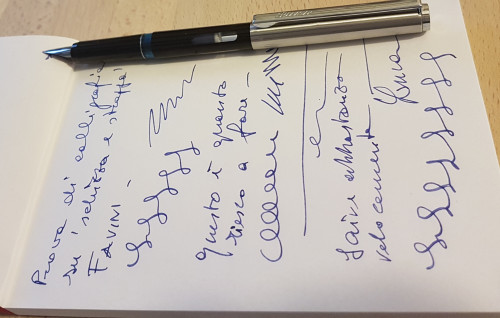 Prova di calligrafia
su 'schizza e strappa'
FAVINI -
Questo è quanto
riesco a fare -
Scrive abbastanza
velocemente